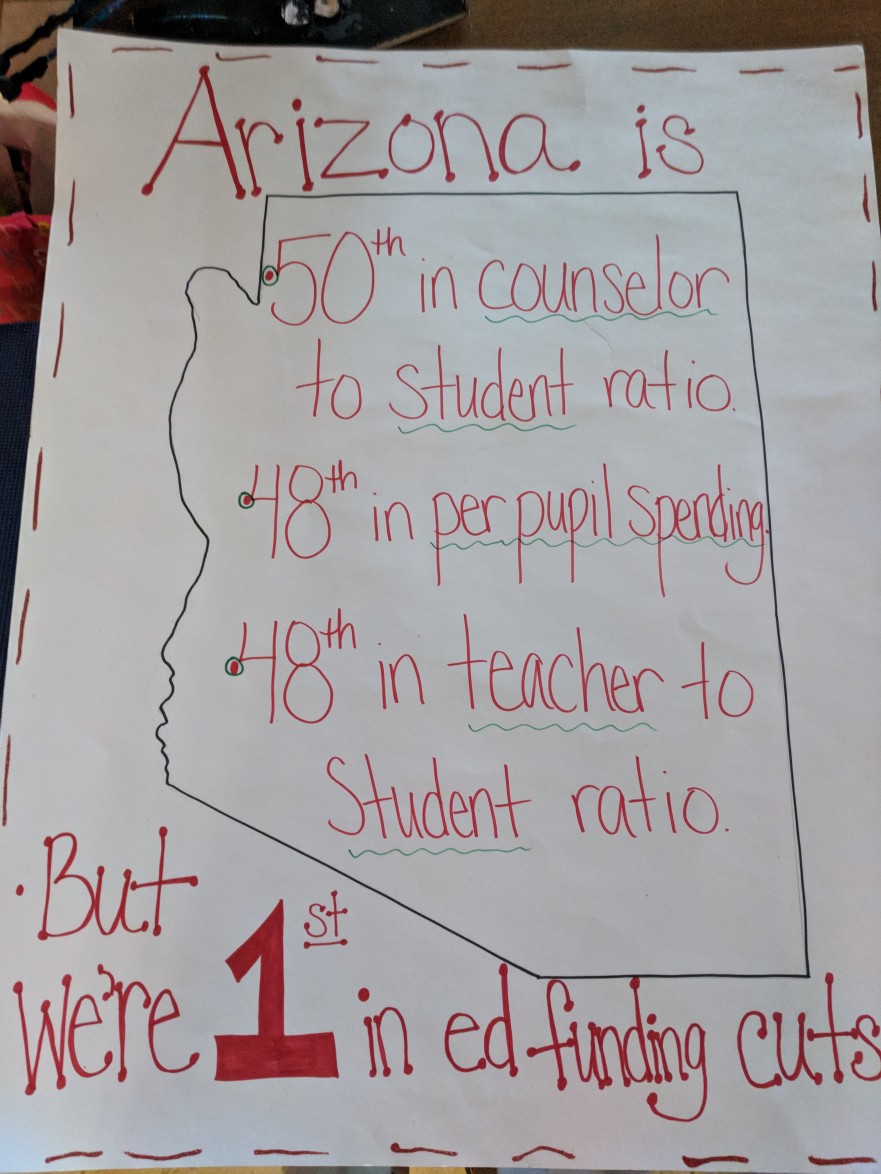 Arizona is
50th in counselor
to student ratio.
48th in per pupil spending.
48th in teacher to
Student ratio.
·But
We're 1st in ed funding cuts